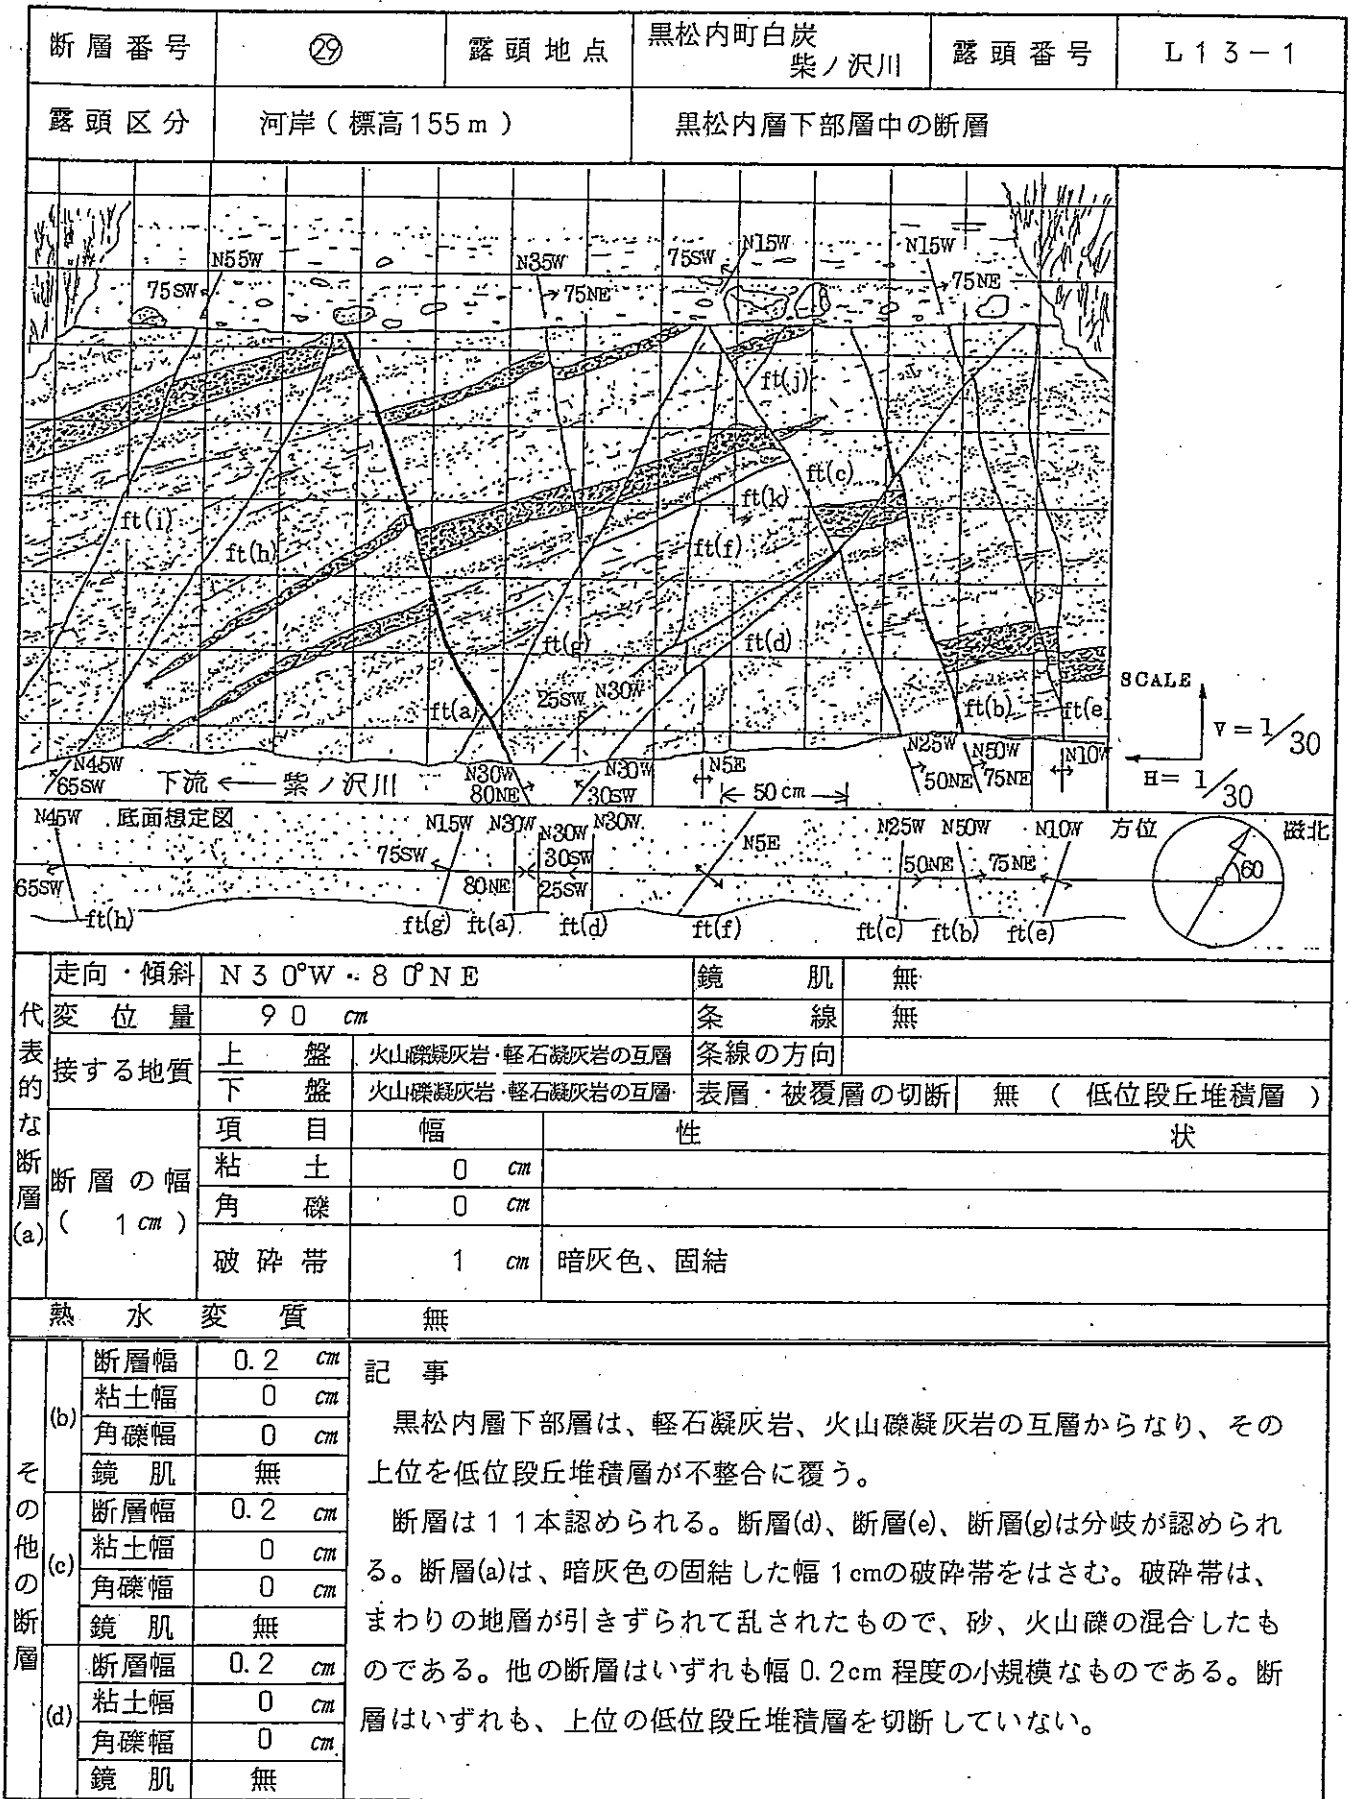 断層番号 ㉙ 露頭地点 黒松内町白炭 露頭番号 L13-1
柴ノ沢川
露頭区分 河岸(標高155m) 黒松内層下部層中の断層
N55W N35W 75SW N15W N15W
75SW 75NE 75NE
ft(j)
ft(c)
ft(k)
ft(i) ft(h) ft(f)
ft(g) ft(d)
25SW N30W
ft(a) ft(b) ft(e)
SCALE
V=1/30
H=1/30
N45W 65SW 下流 ← 柴ノ沢川 N30W 80NE N30W 30SW N5E 50cm N25W 50NE N50W 75NE N10W
N45W 底面想定図 N15W N30W N30W N30W N5E N25W N50W N10W 方位 磁北
65SW 75SW 80NE 30SW 25SW 50NE 75NE 60
ft(h) ft(g) ft(a) ft(d) ft(f) ft(c) ft(b) ft(e)
代表的な断層(a)
走向・傾斜 N30°W・80°NE 鏡肌 無
変位量 90 cm 条線 無
接する地質 上盤 火山礫凝灰岩・軽石凝灰岩の互層 条線の方向
下盤 火山礫凝灰岩・軽石凝灰岩の互層 表層・被覆層の切断 無(低位段丘堆積層)
断層の幅 (1cm) 項目 幅 性状
粘土 0 cm
角礫 0 cm
破砕帯 1 cm 暗灰色、固結
熱水変質 無
その他の断層
(b) 断層幅 0.2 cm
粘土幅 0 cm
角礫幅 0 cm
鏡肌 無
(c) 断層幅 0.2 cm
粘土幅 0 cm
角礫幅 0 cm
鏡肌 無
(d) 断層幅 0.2 cm
粘土幅 0 cm
角礫幅 0 cm
鏡肌 無
記事
黒松内層下部層は、軽石凝灰岩、火山礫凝灰岩の互層からなり、その
上位を低位段丘堆積層が不整合に覆う。
断層は11本認められる。断層(d)、断層(e)、断層(g)は分岐が認められ
る。断層(a)は、暗灰色の固結した幅1cmの破砕帯をはさむ。破砕帯は、
まわりの地層が引きずられて乱されたもので、砂、火山礫の混合したも
のである。他の断層はいずれも幅0.2cm程度の小規模なものである。断
層はいずれも、上位の低位段丘堆積層を切断していない。